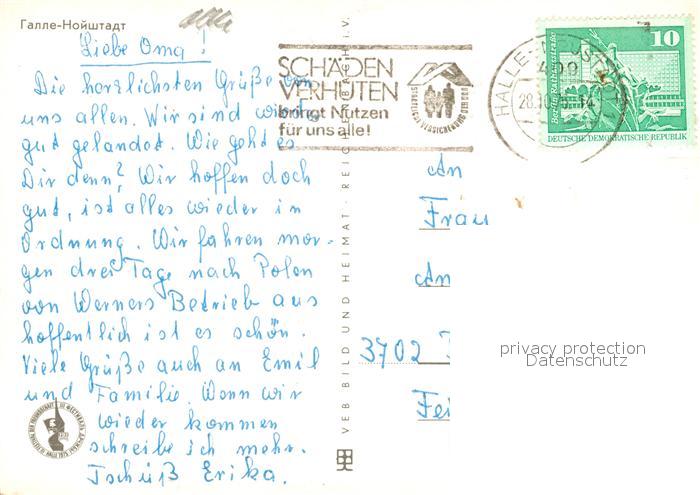 Галле-Нойштадт
Liebe Oma!
Die herzlichsten Grüße von
uns allen. Wir sind wieder
gut gelandet. Wie geht es
Dir denn? Wir hoffen doch
gut, ist alles wieder in
Ordnung. Wir fahren mor-
gen drei Tage nach Polen
von Werners Betrieb aus
hoffentlich ist es schön.
Viele Grüße auch an Emil
und Familie. Wenn wir
wieder kommen
schreibe ich mehr.
Tschüß Erika.
VEB BILD UND HEIMAT · REICHENBACH I.V.
SCHÄDEN
VERHÜTEN
bringt Nutzen
für uns alle!
STAATLICHE VERSICHERUNG DER DDR
HALLE-NEUSTADT
409
28.10.
10
Berlin, Rathausstraße
DEUTSCHE DEMOKRATISCHE REPUBLIK
An
Frau
An
3702
privacy protection
Datenschutz